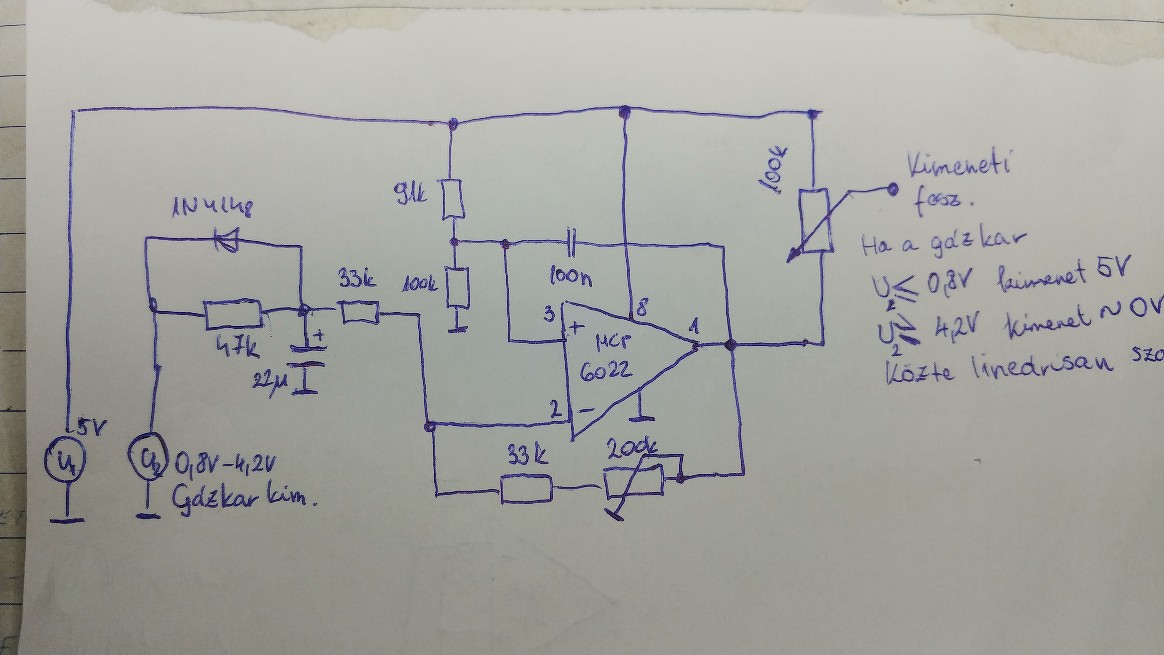 1N4148
47k
22µ
+
33k
91k
100k
100n
3
+
8
1
MCP
6022
2
-
33k
200k
100k
Kimeneti
fesz.
Ha a gázkar
U2 ≤ 0,8V kimenet 5V
U2 ≥ 4,2V kimenet ~ 0V
Közte lineárisan
5V
U1
U2
0,8V-4,2V
Gázkar kim.